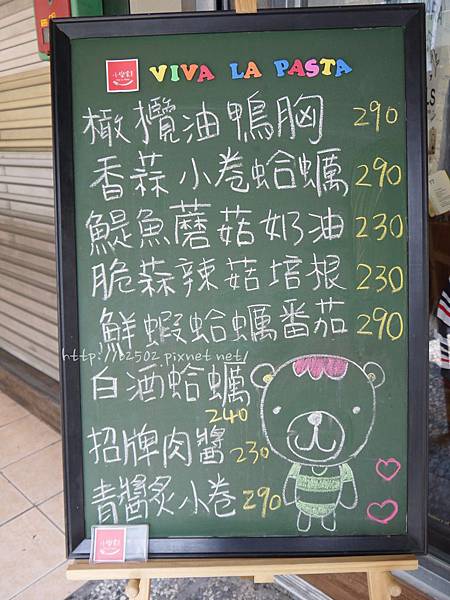 小樂割
VIVA LA PASTA
橄欖油鴨胸 290
香蒜小卷蛤蠣 290
鯷魚蘑菇奶油 230
脆蒜辣菇培根 230
鮮蝦蛤蠣番茄 290
http://b2502.pixnet.net/
白酒蛤蠣 240
招牌肉醬 230
青醬炙小卷 290